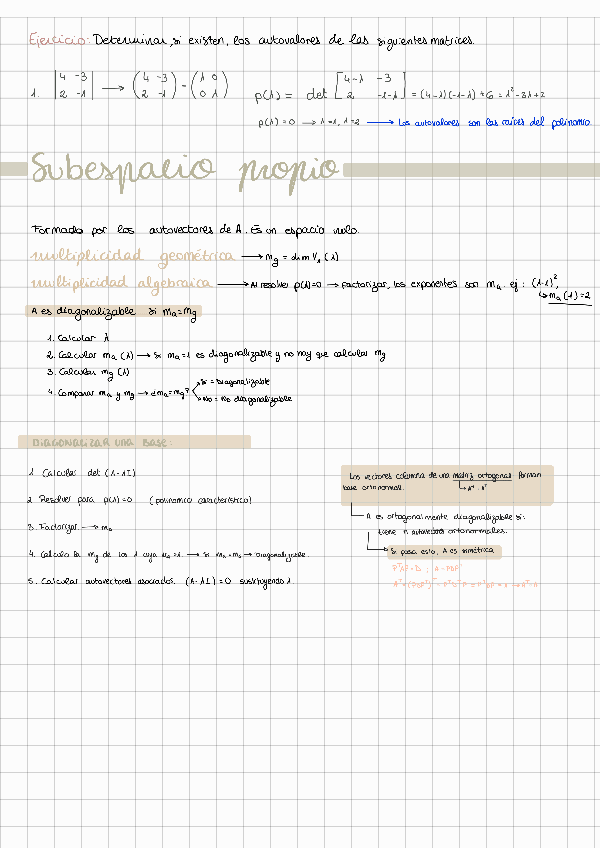 Ejercicio: Determinar, si existen, los autovalores de las siguientes matrices.
1. |4 -3; 2 -1| → (4 -3; 2 -1) - (λ 0; 0 λ) p(λ) = det [4-λ -3; 2 -1-λ] = (4-λ)(-1-λ)+6 = λ²-3λ+2
p(λ)=0 → λ=1, λ=2 → Los autovalores son las raíces del polinomio
Subespacio propio
Formado por los autovectores de A. Es un espacio nulo.
multiplicidad geométrica → mg = dim V₁ (λ)
multiplicidad algebraica → Al resolver p(λ)=0 → factorizar, los exponentes son ma. ej: (λ-1)²,
↳ ma (1)=2
A es diagonalizable si ma=mg
1. Calcular λ
2. Calcular ma (λ) → Si ma=1 es diagonalizable y no hay que calcular mg
3. Calcular mg (λ)
4. Comparar ma y mg → ¿ma=mg?
Sí = Diagonalizable
No = No diagonalizable
DIAGONALIZAR UNA BASE:
1. Calcular det (A-λI)
2. Resolver para p(λ)=0 (polinomio característico)
3. Factorizar → ma
4. Calculo la mg de los λ cuya ma≠1 → si ma=mg → Diagonalizable.
5. Calcular autovectores asociados. (A-λI)=0 sustituyendo λ.
Los vectores columna de una matriz ortogonal forman
base ortonormal. ↳ A⁻¹=Aᵀ
A es ortogonalmente diagonalizable si:
tiene n autovectores ortonormales.
Si pasa esto, A es simétrica
PᵀAP=D ; A=PDPᵀ